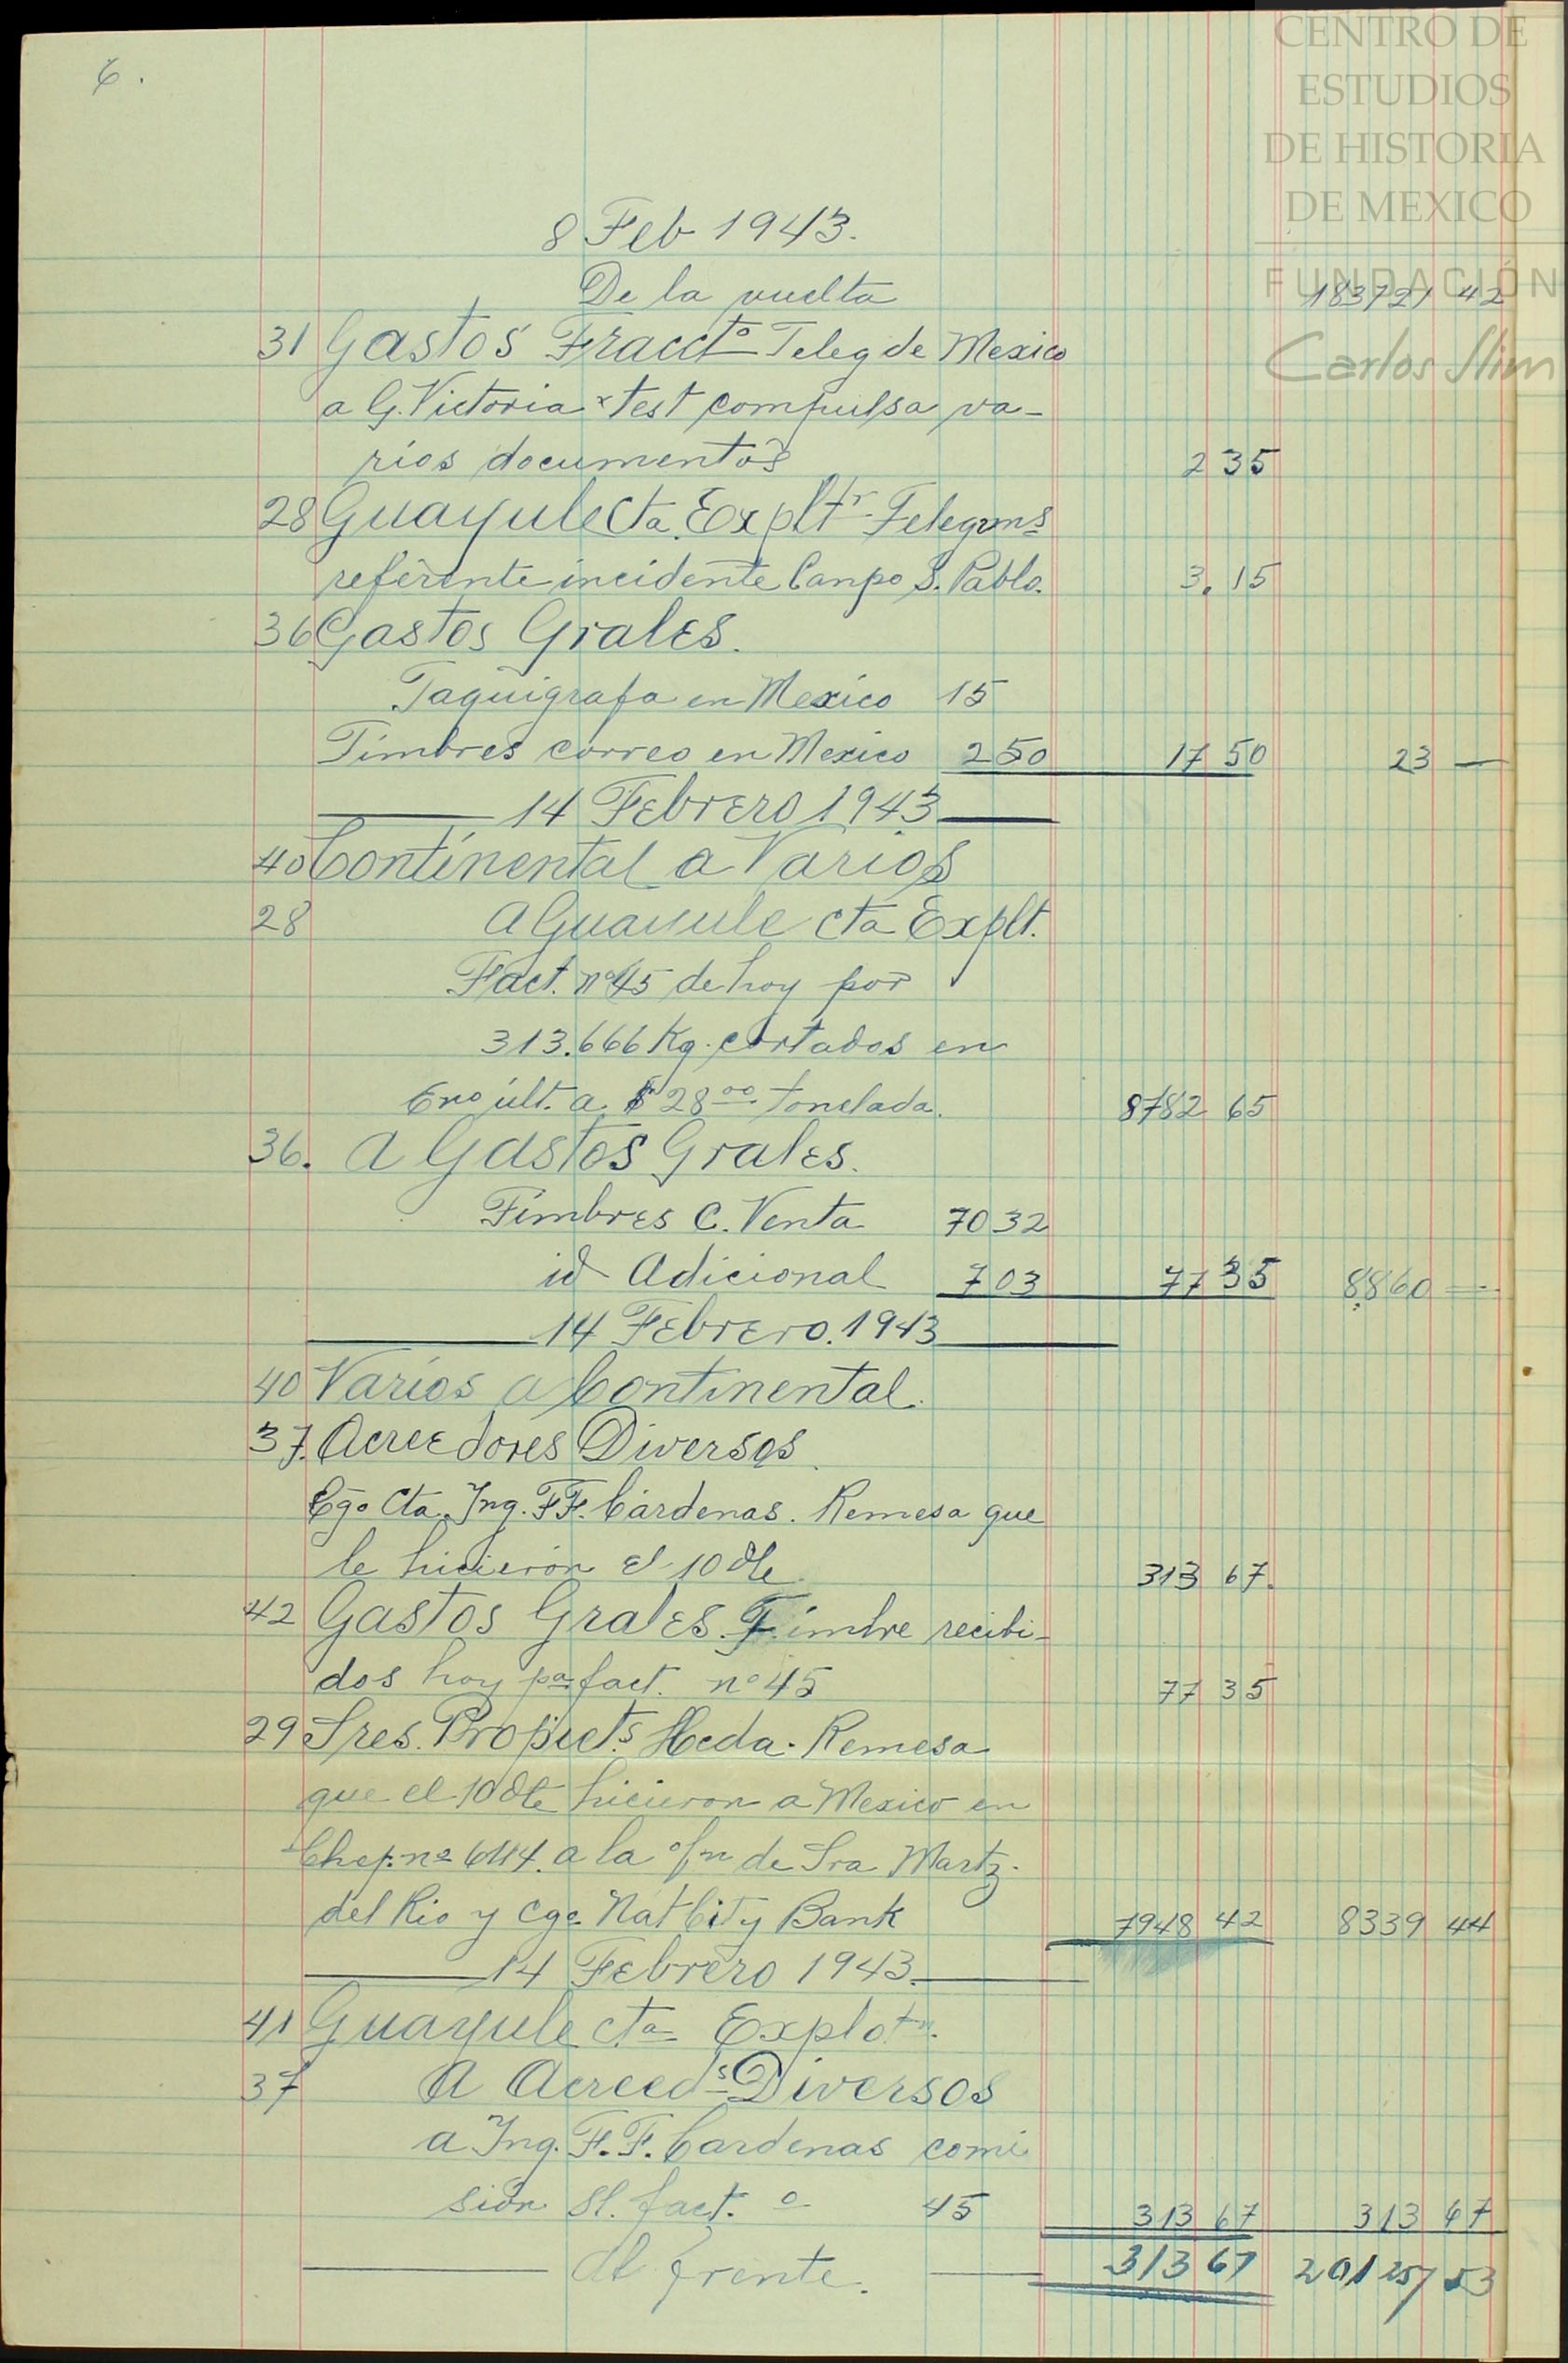 6.
CENTRO DE
ESTUDIOS
DE HISTORIA
DE MEXICO
FUNDACIÓN
Carlos Slim
8 Feb 1943.
De la vuelta 183721 42
31 Gastos Fracctº Teleg de Mexico
a G. Victoria x test compulsa va-
rios documentos 2 35
28 Guayule Cta. Expltr. Telegms
referente incidente Canpo S. Pablo. 3.15
36 Gastos Grales.
Taquigrafa en Mexico 15
Timbres correo en Mexico 2 50 17 50 23 —
14 Febrero 1943
40 Continental a Varios
28 a Guayule cta Explt.
Fact. nº 45 de hoy por
313.666 Kg. cortados en
Enº últ. a $ 28.00 tonelada. 8782 65
36. a Gastos Grales.
Timbres C. Venta 70 32
id Adicional 7 03 77 35 8860 —
14 Febrero. 1943
40 Varios a Continental.
37. Acreedores Diversos.
Cgo Cta. Ing. F.F. Cárdenas. Remesa que
le hicieron el 10 dte 313 67.
42 Gastos Grales. Timbre recibi-
dos hoy pa. fact. nº 45 77 35
29 Sres. Propiets. Hcda. Remesa
que el 10 dte hicieron a Mexico en
Cheq. nº a la o/n de Sra Martz.
del Rio y cgo Nat City Bank 7948 42 8339 44
14 Febrero 1943.
41 Guayule cta Explotn.
37 A Acreeds Diversos
a Ing. F.F. Cardenas comi
sión s/. fact. º 45 313 67 313 67
Al frente. 313 67 201257 53